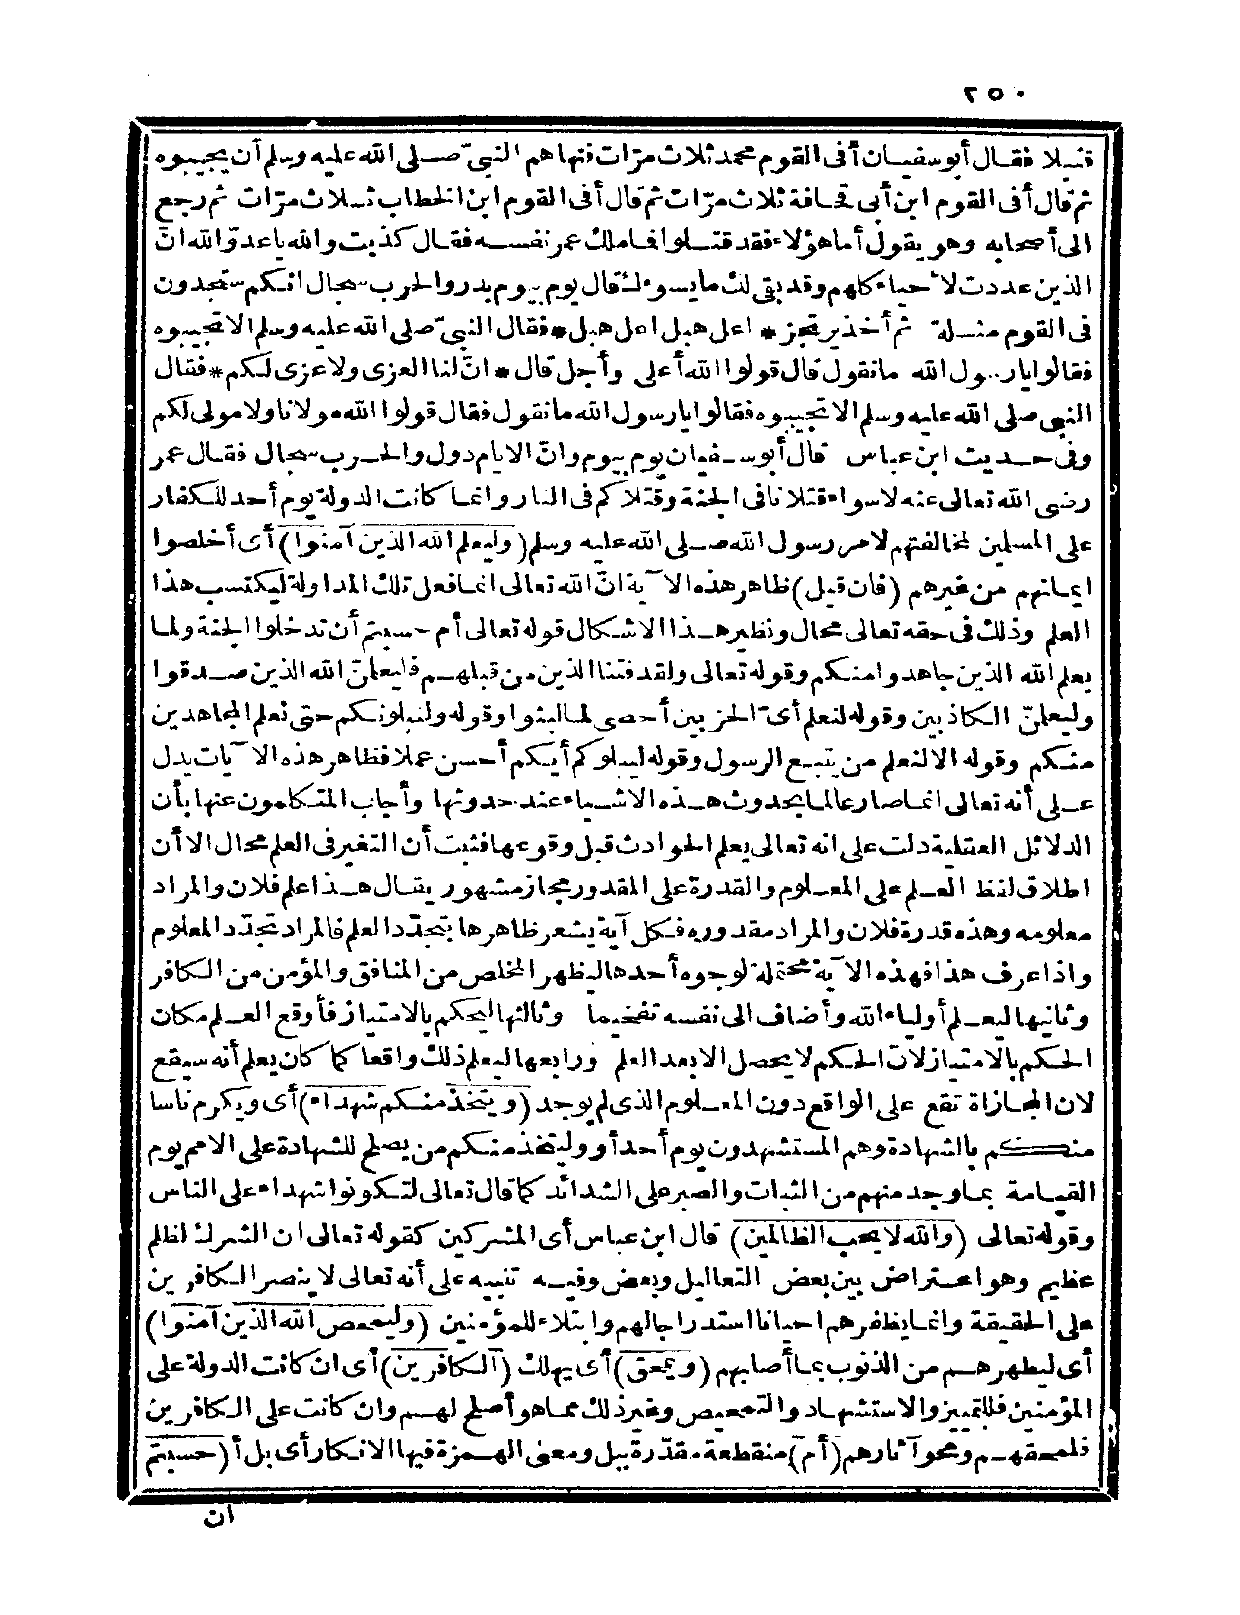 ٢٥٠
قتيلا فقال أبوسفيان أفى القوم محمد ثلاث مرّات فنهاهم النبىّ صلى الله عليه وسلم أن يجيبوه
ثم قال أفى القوم ابن أبى قحافة ثلاث مرّات ثم قال أفى القوم ابن الخطاب ثلاث مرّات ثم رجع
الى أصحابه وهو يقول أما هؤلاء فقد قتلوا فما ملك عمر نفسه فقال كذبت والله يا عدوّ الله انّ
الذين عددت لاحياء كلهم وقد بقى لك ما يسوءك قال يوم بيوم بدر والحرب سجال انكم ستجدون
فى القوم مثلة ثم أخذ يرتجز * اعل هبل اعل هبل * فقال النبىّ صلى الله عليه وسلم ألا تجيبوه
فقالوا يا رسول الله ما نقول قال قولوا الله أعلى وأجل قال * انّ لنا العزى ولا عزى لكم * فقال
النبى صلى الله عليه وسلم ألا تجيبوه فقالوا يا رسول الله ما نقول فقال قولوا الله مولانا ولا مولى لكم
وفى حديث ابن عباس قال أبوسفيان يوم بيوم وانّ الايام دول والحرب سجال فقال عمر
رضى الله تعالى عنه لاسواء قتلانا فى الجنة وقتلاكم فى النار وانما كانت الدولة يوم أحد للكفار
على المسلمين لمخالفتهم لامر رسول الله صلى الله عليه وسلم (وليعلم الله الذين آمنوا) أى أخلصوا
ايمانهم من غيرهم (فان قيل) ظاهر هذه الآية انّ الله تعالى انما فعل تلك المداولة ليكتسب هذا
العلم وذلك فى حقه تعالى محال ونظير هذا الاشكال قوله تعالى أم حسبتم أن تدخلوا الجنة ولما
يعلم الله الذين جاهدوا منكم وقوله تعالى ولقد فتنا الذين من قبلهم فليعلمنّ الله الذين صدقوا
وليعلمنّ الكاذبين وقوله لنعلم أىّ الحزبين أحصى لما لبثوا وقوله ولنبلونكم حتى نعلم المجاهدين
منكم وقوله الا لنعلم من يتبع الرسول وقوله ليبلوكم أيكم أحسن عملا فظاهر هذه الآيات يدل
على أنه تعالى انما صار عالما بحدوث هذه الاشياء عند حدوثها وأجاب المتكلمون عنها بأن
الدلائل العقلية دلت على انه تعالى يعلم الحوادث قبل وقوعها فثبت أن التغير فى العلم محال الا أن
اطلاق لفظ العلم على المعلوم والقدرة على المقدور مجاز مشهور يقال هذا علم فلان والمراد
معلومه وهذه قدرة فلان والمراد مقدوره فكل آية يشعر ظاهرها بتجدّد العلم فالمراد تجدّد المعلوم
واذا عرف هذا فهذه الآية محتملة لوجوه أحدها ليظهر المخلص من المنافق والمؤمن من الكافر
وثانيها ليعلم أولياء الله وأضاف الى نفسه تفخيما وثالثها ليحكم بالامتياز فأوقع العلم مكان
الحكم بالامتياز لانّ الحكم لا يحصل الا بعد العلم ورابعها ليعلم ذلك واقعا كما كان يعلم أنه سيقع
لان المجازاة تقع على الواقع دون المعلوم الذى لم يوجد (ويتخذ منكم شهداء) أى ويكرم ناسا
منكم بالشهادة وهم المستشهدون يوم أحد أو وليتخذ منكم من يصلح للشهادة على الامم يوم
القيامة بما وجد منهم من الثبات والصبر على الشدائد كما قال تعالى لتكونوا شهداء على الناس
وقوله تعالى (والله لا يحب الظالمين) قال ابن عباس أى المشركين كقوله تعالى ان الشرك لظلم
عظيم وهو اعتراض بين بعض التعاليل وبعض وفيه تنبيه على أنه تعالى لا ينصر الكافرين
على الحقيقة وانما يظفرهم احيانا استدراجا لهم وابتلاء للمؤمنين (وليمحص الله الذين آمنوا)
أى ليطهرهم من الذنوب بما أصابهم (ويمحق) أى يهلك (الكافرين) أى ان كانت الدولة على
المؤمنين فللتمييز والاستشهاد والتمحيص وغير ذلك مما هو أصلح لهم وان كانت على الكافرين
فلمحقهم ومحو آثارهم (أم) منقطعة مقدّرة ببل ومعنى الهمزة فيها الانكار أى بل أ (حسبتم
ان